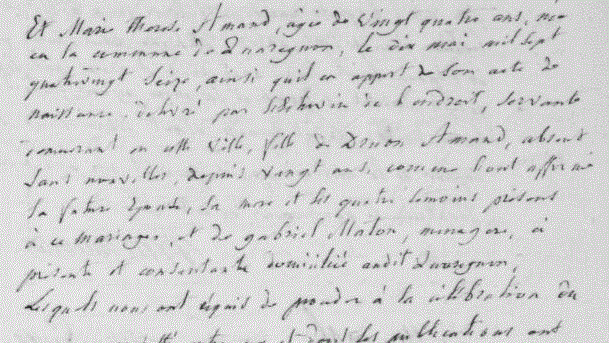 Et Marie therese Amand, âgée de vingt quatre ans, née
en la commune de Quaregnon, le dix mai mil sept
quatrevingt seize, ainsi quil en appert de son acte de
naissance delivré par l'Echevin de l'endroit, servante
demeurant en cette ville, fille de Druon Amand, absent
sans nouvelles, depuis vingt ans, comme l'ont affirmé
la future Epouse, sa mere et les quatre temoins présens
à ce mariage, et de gabriel Maton, menagere, ci
présente et consentante domiciliée audit Quaregnon;
Lesquels nous ont requis de proceder à la célébration du
et dont les publications ont